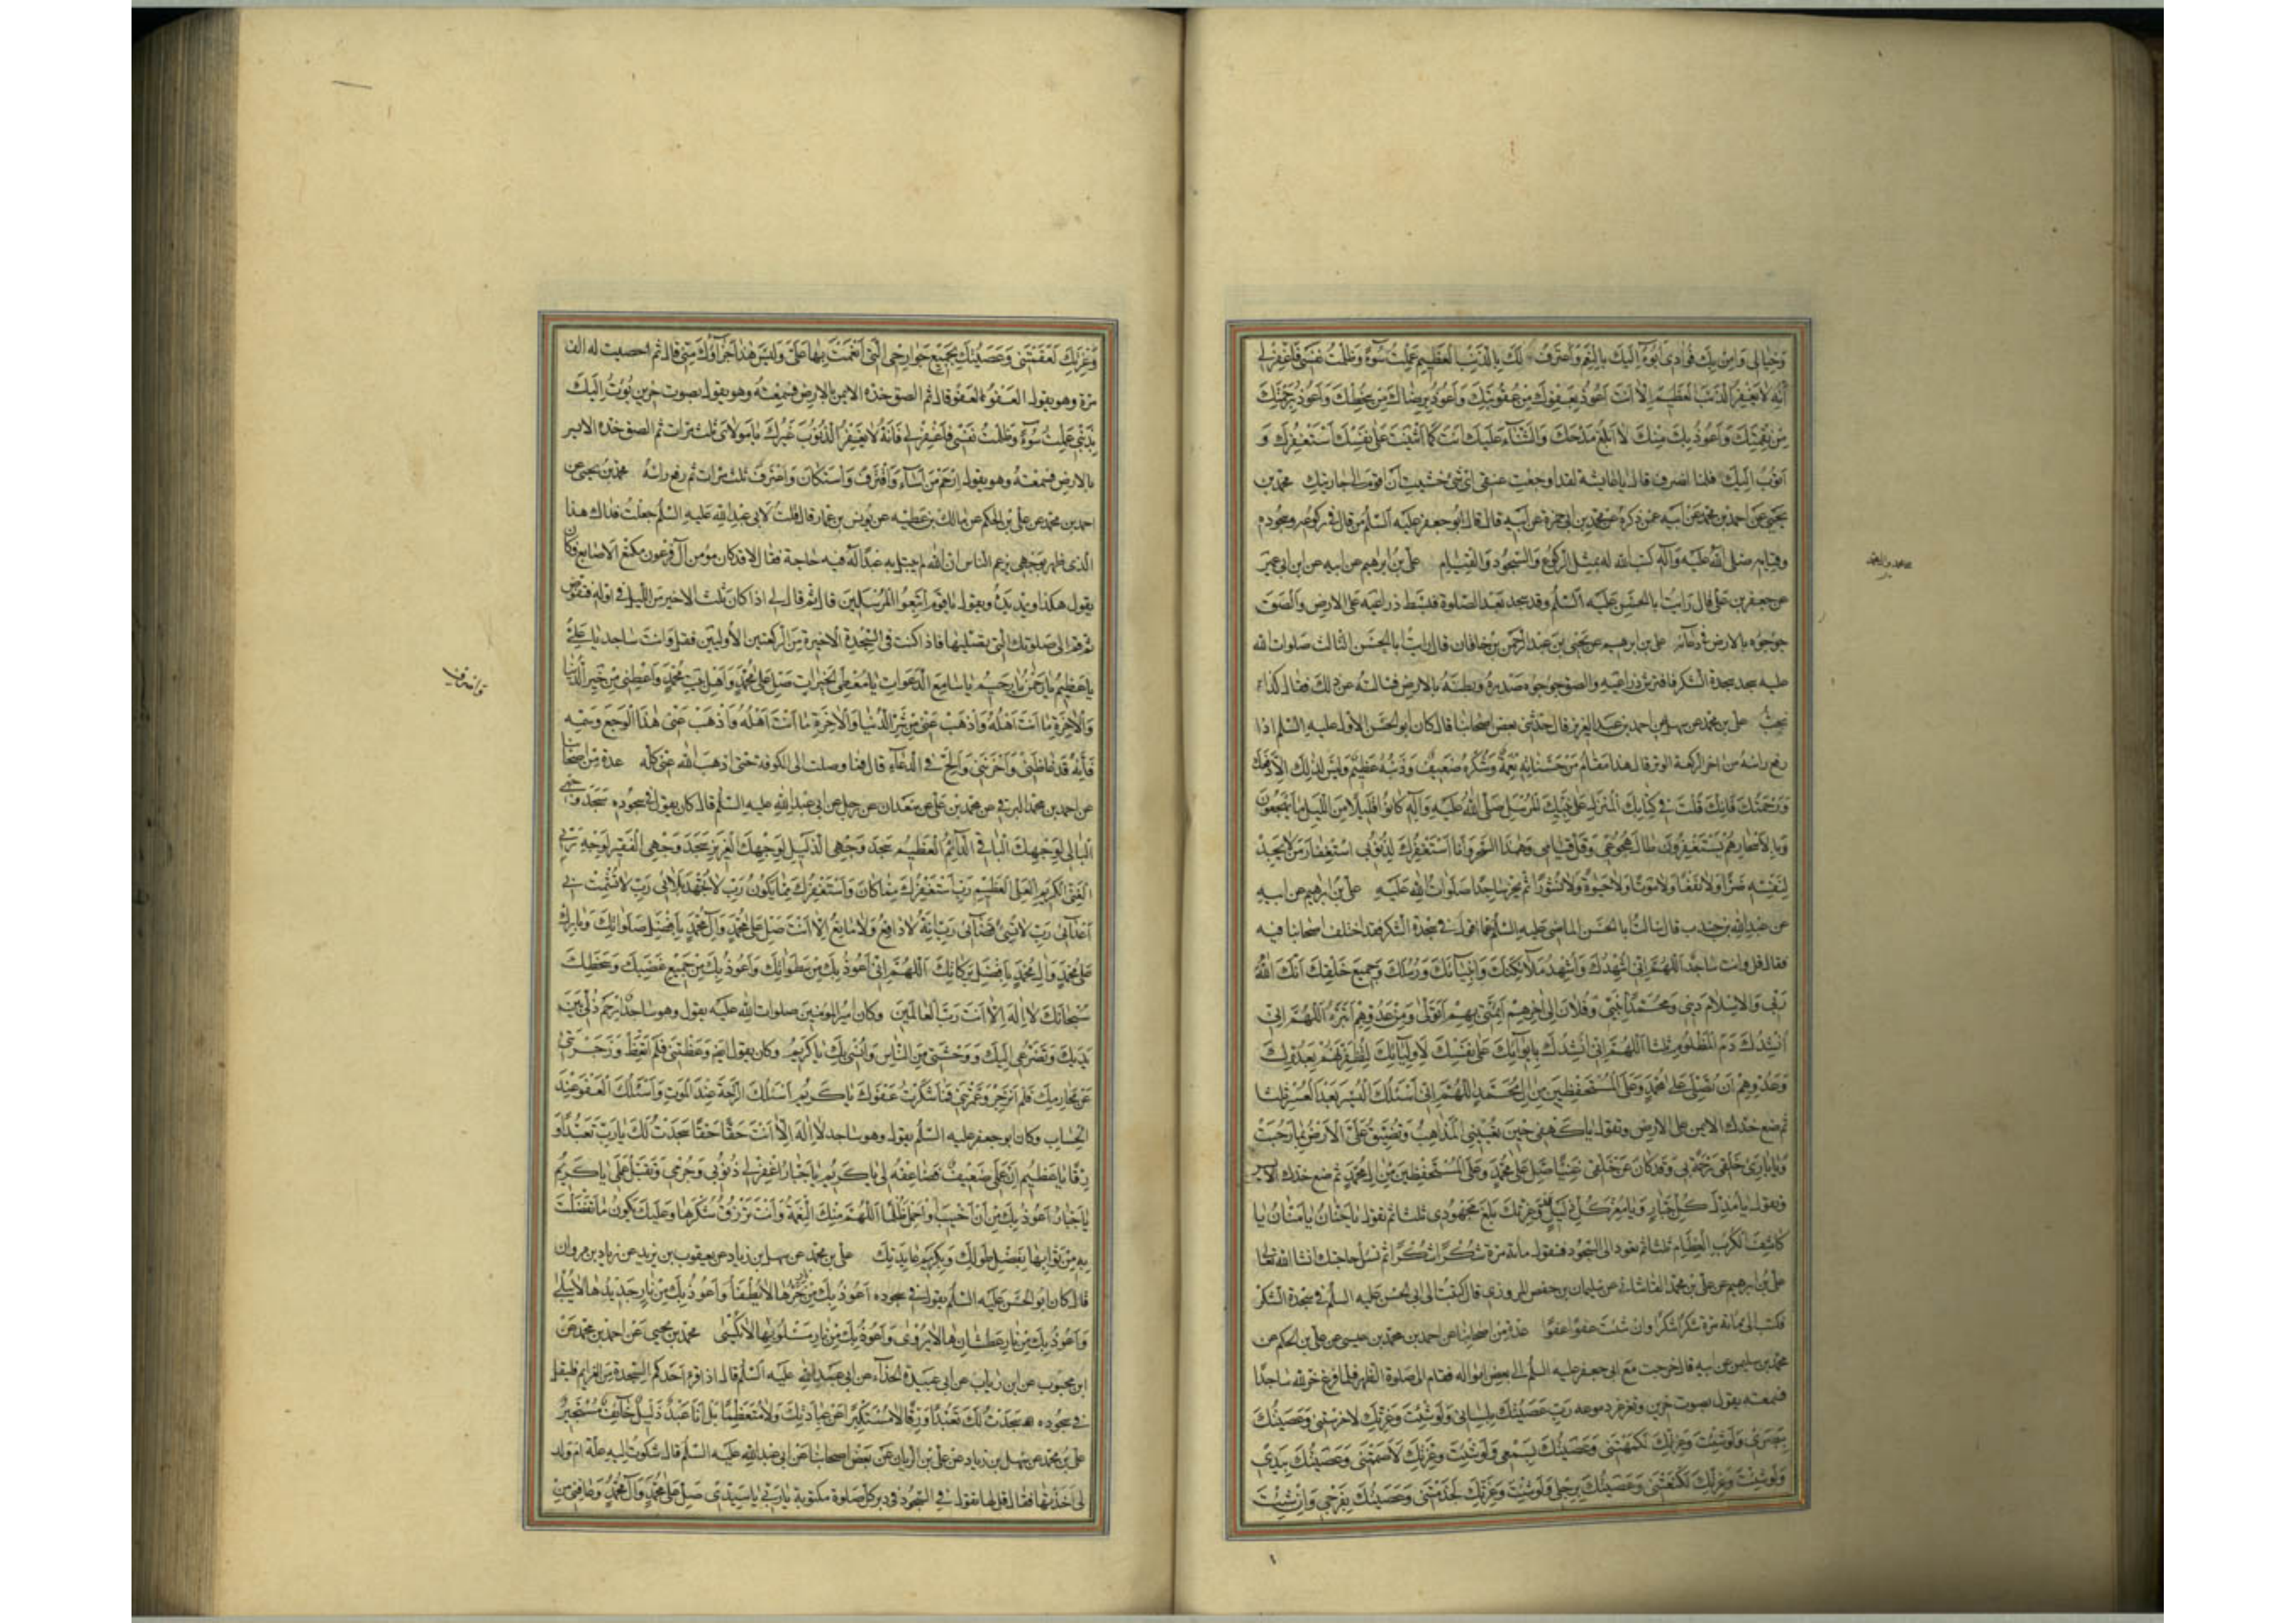 وَخِيَالِى وَامَنَ بِكَ فُؤَادِى اَبُوءُ اِلَيْكَ بِالنِّعَمِ وَاَعْتَرِفُ لَكَ بِالذَّنْبِ الْعَظِيمِ عَمِلْتُ سُوءً وَظَلَمْتُ نَفْسِى فَاغْفِرْ لِى
اِنَّهُ لَا يَغْفِرُ الذَّنْبَ الْعَظِيمَ اِلَّا اَنْتَ اَعُوذُ بِعَفْوِكَ مِنْ عُقُوبَتِكَ وَاَعُوذُ بِرِضَاكَ مِنْ سَخَطِكَ وَاَعُوذُ بِرَحْمَتِكَ
مِنْ نَقِمَتِكَ وَاَعُوذُ بِكَ مِنْكَ لَا اَبْلُغُ مَدْحَكَ وَالثَّنَاءَ عَلَيْكَ اَنْتَ كَمَا اَثْنَيْتَ عَلَى نَفْسِكَ اَسْتَغْفِرُكَ وَ
اَتُوبُ اِلَيْكَ فلما انصرف قال يا عايشة لقد اوجعت عنقى اى شئ خشيت ان اقوم الى جاريتك محمد بن
يحيى عن احمد بن محمد عن ابيه عمن ذكره عن محمد بن ابى حمزة عن ابيه قال قال ابو جعفر عليه السلم من قال فى ركوعه وسجوده
وقيامه صلى الله عليه وآله كتب الله له بمثل الركوع والسجود والقيام على بن ابرهيم عن ابيه عن ابن ابى عمير
عن جعفر بن على قال رايت ابا الحسن عليه السلم وقد سجد بعد الصلوة فبسط ذراعيه على الارض والصق
جؤجؤه بالارض فى دعائه على بن ابرهيم عن يحيى بن عبد الرحمن بن خاقان قال رايت ابا الحسن الثالث صلوات الله
عليه سجد سجدة الشكر فافترش ذراعيه والصق جؤجؤه صدره وبطنه بالارض فسالته عن ذلك فقال كذا
نحب على بن محمد عن سهل عن احمد بن عبد العزيز قال حدثنى بعض اصحابنا قال كان ابو الحسن الاول عليه السلم اذا
رفع راسه من اخر الركعة الوتر قال هذا مقام من حسناته نعمة وشكره ضعيف وذنبه عظيم وليس لذلك الا دفعك
ورحمتك فانك قلت فى كتابك المنزل على نبيك المرسل صلى الله عليه وآله كانوا قليلا من الليل ما يهجعون
وبالاسحار هم يستغفرون طال هجوعى وقل قيامى وهذا السحر وانا استغفرك لذنوبى استغفار من لا يجد
لنفسه ضرا ولا نفعا ولا موتا ولا حيوة ولا نشورا ثم يخر ساجدا صلوات الله عليه على بن ابرهيم عن ابيه
عن عبد الله بن جندب قال سالت ابا الحسن الماضى عليه السلم عما اقول فى سجدة الشكر فقد اختلف اصحابنا فيه
فقال قل وانت ساجد اللهم انى اشهدك واشهد ملائكتك وانبيائك ورسلك وجميع خلقك انك الله
ربى والاسلام دينى ومحمدا نبيى وفلان الى اخرهم ائمتى بهم اتولى ومن عدوهم اتبرء اللهم انى
انشدك دم المظلوم ثلثا اللهم انى انشدك بايوائك على نفسك لاوليائك لتظفرنهم بعدوك
وعدوهم ان تصلى على محمد وعلى المستحفظين من ال محمد اللهم انى اسئلك اليسر بعد العسر ثلثا
ثم ضع خدك الايمن على الارض وتقول يا كهفى حين تعيينى المذاهب وتضيق على الارض بما رحبت
ويا بارئ خلقى رحمة بى وقد كان عن خلقى غنيا صل على محمد وعلى المستحفظين من ال محمد ثم ضع خدك الايسر
وتقول يا مذل كل جبار ويا معز كل ذليل قد وعزتك بلغ مجهودى ثلثا ثم تقول يا حنان يا منان يا
كاشف الكرب العظام ثلثا ثم تعود الى السجود فتقول مائة مرة شكرا شكرا ثم تسئل حاجتك انشا الله تعالى
على بن ابرهيم عن على بن محمد القاسانى عن سليمان بن حفص المروزى قال كتبت الى ابى الحسن عليه السلم فى سجدة الشكر
فكتب الى مائة مرة شكرا شكرا وان شئت عفوا عفوا عدة من اصحابنا عن احمد بن محمد بن عيسى عن على بن الحكم عن
محمد بن سليمن عن ابيه قال خرجت مع ابى جعفر عليه السلم الى بعض امواله فقام الى صلوة الظهر فلما فرغ خر لله ساجدا
فسمعته يقول بصوت حزين وتغرغر دموعه رب عصيتك بلسانى ولو شئت وعزتك لاخرستنى وعصيتك
ببصرى ولو شئت وعزتك لكمهتنى وعصيتك بسمعى ولو شئت وعزتك لاصممتنى وعصيتك بيدى
ولو شئت وعزتك لكنعتنى وعصيتك برجلى ولو شئت وعزتك لجذمتنى وعصيتك بفرجى وان شئت
وَعِزَّتِكَ لَعَقَمْتَنِى وَعَصَيْتُكَ بِجَمِيعِ جَوَارِحِى الَّتِى اَنْعَمْتَ بِهَا عَلَىَّ وَلَيْسَ هٰذَا جَزَاؤُكَ مِنِّى قال ثم احصيت له الف
مرة وهو يقول العفو العفو قال ثم الصق خده الايمن بالارض فسمعته وهو يقول بصوت حزين بؤت اليك
بذنبى عملت سوء وظلمت نفسى فاغفر لى فانه لا يغفر الذنوب غيرك يا مولاى ثلث مرات ثم الصق خده الايسر
بالارض فسمعته وهو يقول ارحم من اساء واقترف واستكان واعترف ثلث مرات ثم رفع راسه محمد بن يحيى عن
احمد بن محمد عن على بن الحكم عن مالك بن عطيه عن يونس بن عمار قال قلت لابى عبد الله عليه السلم جعلت فداك هذا
الذى ظهر بوجهى يزعم الناس ان الله لم يبتل به عبدا له فيه حاجة فقال لا قد كان مؤمن آل فرعون مكنع الاصابع فكان
يقول هكذا ويمد يده ويقول يا قوم اتبعوا المرسلين قال ثم قال لى اذا كان ثلث الاخير من الليل فى اوله فتوض
ثم قم الى صلوتك التى تصليها فاذا كنت فى السجدة الاخيرة من الركعتين الاوليين فقل وانت ساجد يا على
يا عظيم يا رحمن يا رحيم يا سامع الدعوات يا معطى الخيرات صل على محمد واهل بيت محمد واعطنى من خير الدنيا
والاخرة ما انت اهله واذهب عنى من شر الدنيا والاخرة ما انت اهله واذهب عنى هذا الوجع وسمه
فانه قد غاظنى واحزننى والح فى الدعاء قال فما وصلت الى الكوفة حتى اذهب الله عنى كله عدة من اصحابنا
عن احمد بن محمد البرقى عن محمد بن على عن سعدان عن رجل عن ابى عبد الله عليه السلم قال كان يقول فى سجوده سجد وجهى
البالى لوجهك الباقى الدائم العظيم سجد وجهى الذليل لوجهك العزيز سجد وجهى الفقير لوجه ربى
الغنى الكريم العلى العظيم رب استغفرك مما كان واستغفرك مما يكون رب لا تجهد بلائى رب لا تشمت بى
اعدائى رب لا تسئ قضائى رب انه لا دافع ولا مانع الا انت صل على محمد وآل محمد بافضل صلواتك وبارك
على محمد وال محمد بافضل بركاتك اللهم انى اعوذ بك من سطواتك واعوذ بك من جميع غضبك وسخطك
سبحانك لا اله الا انت رب العالمين وكان امير المؤمنين صلوات الله عليه يقول وهو ساجد ارحم ذلى بين
يديك وتضرعى اليك ووحشتى من الناس وانسى بك يا كريم وكان يقول ايضا وعظتنى فلم اتعظ وزجرتنى
عن محارمك فلم انزجر وعمرتنى فما شكرت عفوك يا كريم اسئلك الراحة عند الموت واسئلك العفو عند
الحساب وكان ابو جعفر عليه السلم يقول وهو ساجد لا اله الا انت حقا حقا سجدت لك يا رب تعبدا و
رقا يا عظيم ان عملى ضعيف فضاعفه لى يا كريم يا جبار اغفر لى ذنوبى وجرمى وتقبل عملى يا كريم
يا جبار اعوذ بك من ان اخيب او احمل ظلما اللهم منك النعمة وانت ترزق شكرها وعليك يكون ما تفضلت
به من ثوابها بفضل طولك وبكريم عايدتك على بن محمد عن سهل بن زياد عن يعقوب بن يزيد عن زياد بن مروان
قال كان ابو الحسن عليه السلم يقول فى سجوده اعوذ بك من نار حرها لا يطفأ واعوذ بك من نار جديدها لا يبلى
واعوذ بك من نار عطشانها لا يروى واعوذ بك من نار مسلوبها لا يكسى محمد بن يحيى عن احمد بن محمد عن
ابن محبوب عن ابن رياب عن ابى عبيدة الحذاء عن ابى عبد الله عليه السلم قال اذا قرء احدكم السجدة من العزايم فليقل
فى سجوده سجدت لك تعبدا ورقا لا مستكبرا عن عبادتك ولا متعظما بل انا عبد ذليل خائف مستجير
على بن محمد عن سهل بن زياد عن على بن الريان عن بعض اصحابنا عن ابى عبد الله عليه السلم قال شكوت اليه علة ام ولد
لى اخذتها فقال قل لها تقول فى السجود فى دبر كل صلوة مكتوبة يا ربى يا سيدى صل على محمد وآل محمد وعافنى من